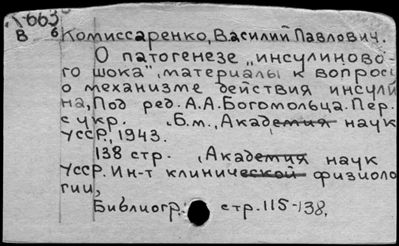 1663
В 6
Комиссаренко, Василий Павлович.
О патогенезе „инсулиново-
го шока", материалы к вопросу
о механизме действия инсули
на, Под ред. А.А. Богомольца. Пер.
с укр. Б.м., Академия наук
УССР, 1943.
138 стр. (Академия наук
УССР. Ин-т клинической физиоло
гии,
Библиогр.: стр. 115-138.